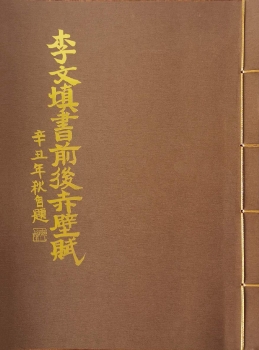 李文填書前後赤壁賦
辛丑年秋自題